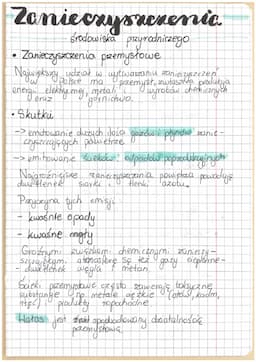 Zanieczyszczenia
środowiska przyrodniczego
• Zanieczyszczenia przemysłowe
Największy udział w wytwarzaniu zanieczyszczeń
w Polsce ma przemysł, zwłaszcza produkcja
energi elektrycznej, metali i wyrobów chemicznych
oraz górnictwo.
• Skutki
-> emitowanie dużych ilości gazów i pyłów zanie-
czyszczających powietrze
-> emitowanie ścieków, odpadów poprodukcyjnych
Najgroźniejsze zanieczyszczenia powietrza powodują
dwutlenek siarki i tlenki azotu.
Przyczyną tych emisji
- kwaśne opady
- kwaśne mgły
Groźnymi związkami chemicznymi zanieczy-
szczającymi atmosferę są też gazy cieplarnia-
- dwutlenek węgla i metan.
Ścieki przemysłowe często zawierają toksyczne
substancje np. metale ciężkie (ołów, kadm,
rtęć) produkty ropochodne.
Hałas jest spowodowany działalnością
przemysłową.